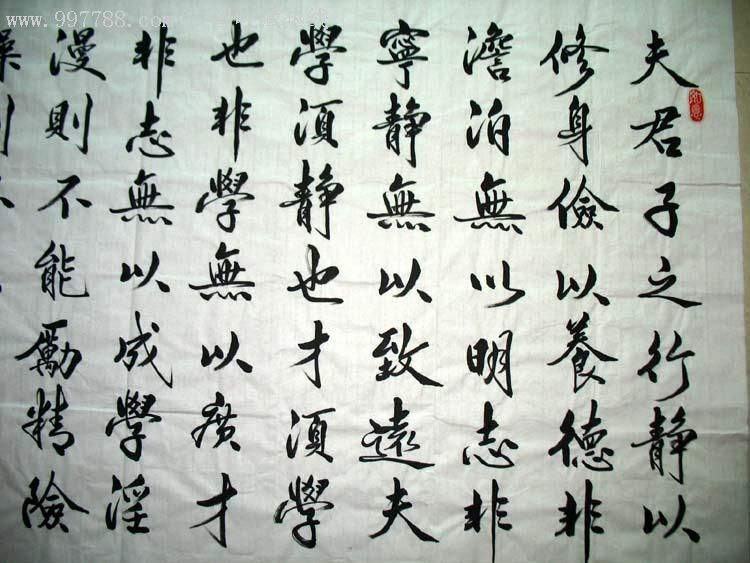 夫君子之行静以
修身儉以養德非
澹泊無以明志非
寧静無以致遠夫
學須静也才須學
也非學無以廣才
非志無以成學淫
漫則不能勵精險
www.997788.com